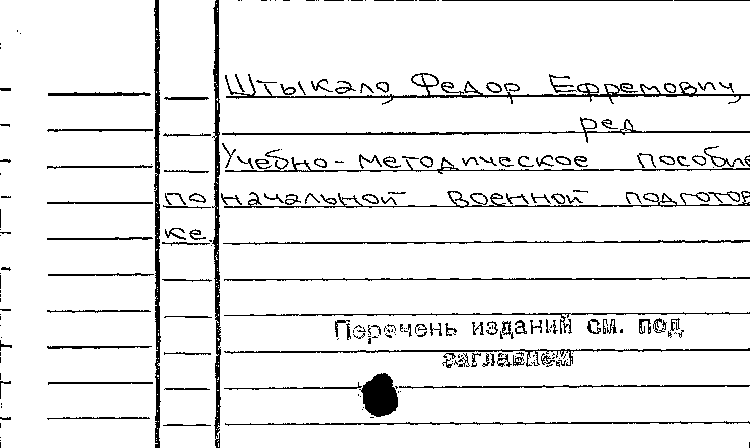 Штыкало, Федор Ефремович,
ред
Учебно-методическое пособие
по начальной военной подготов
ке.
Перечень изданий см. под
заглавием